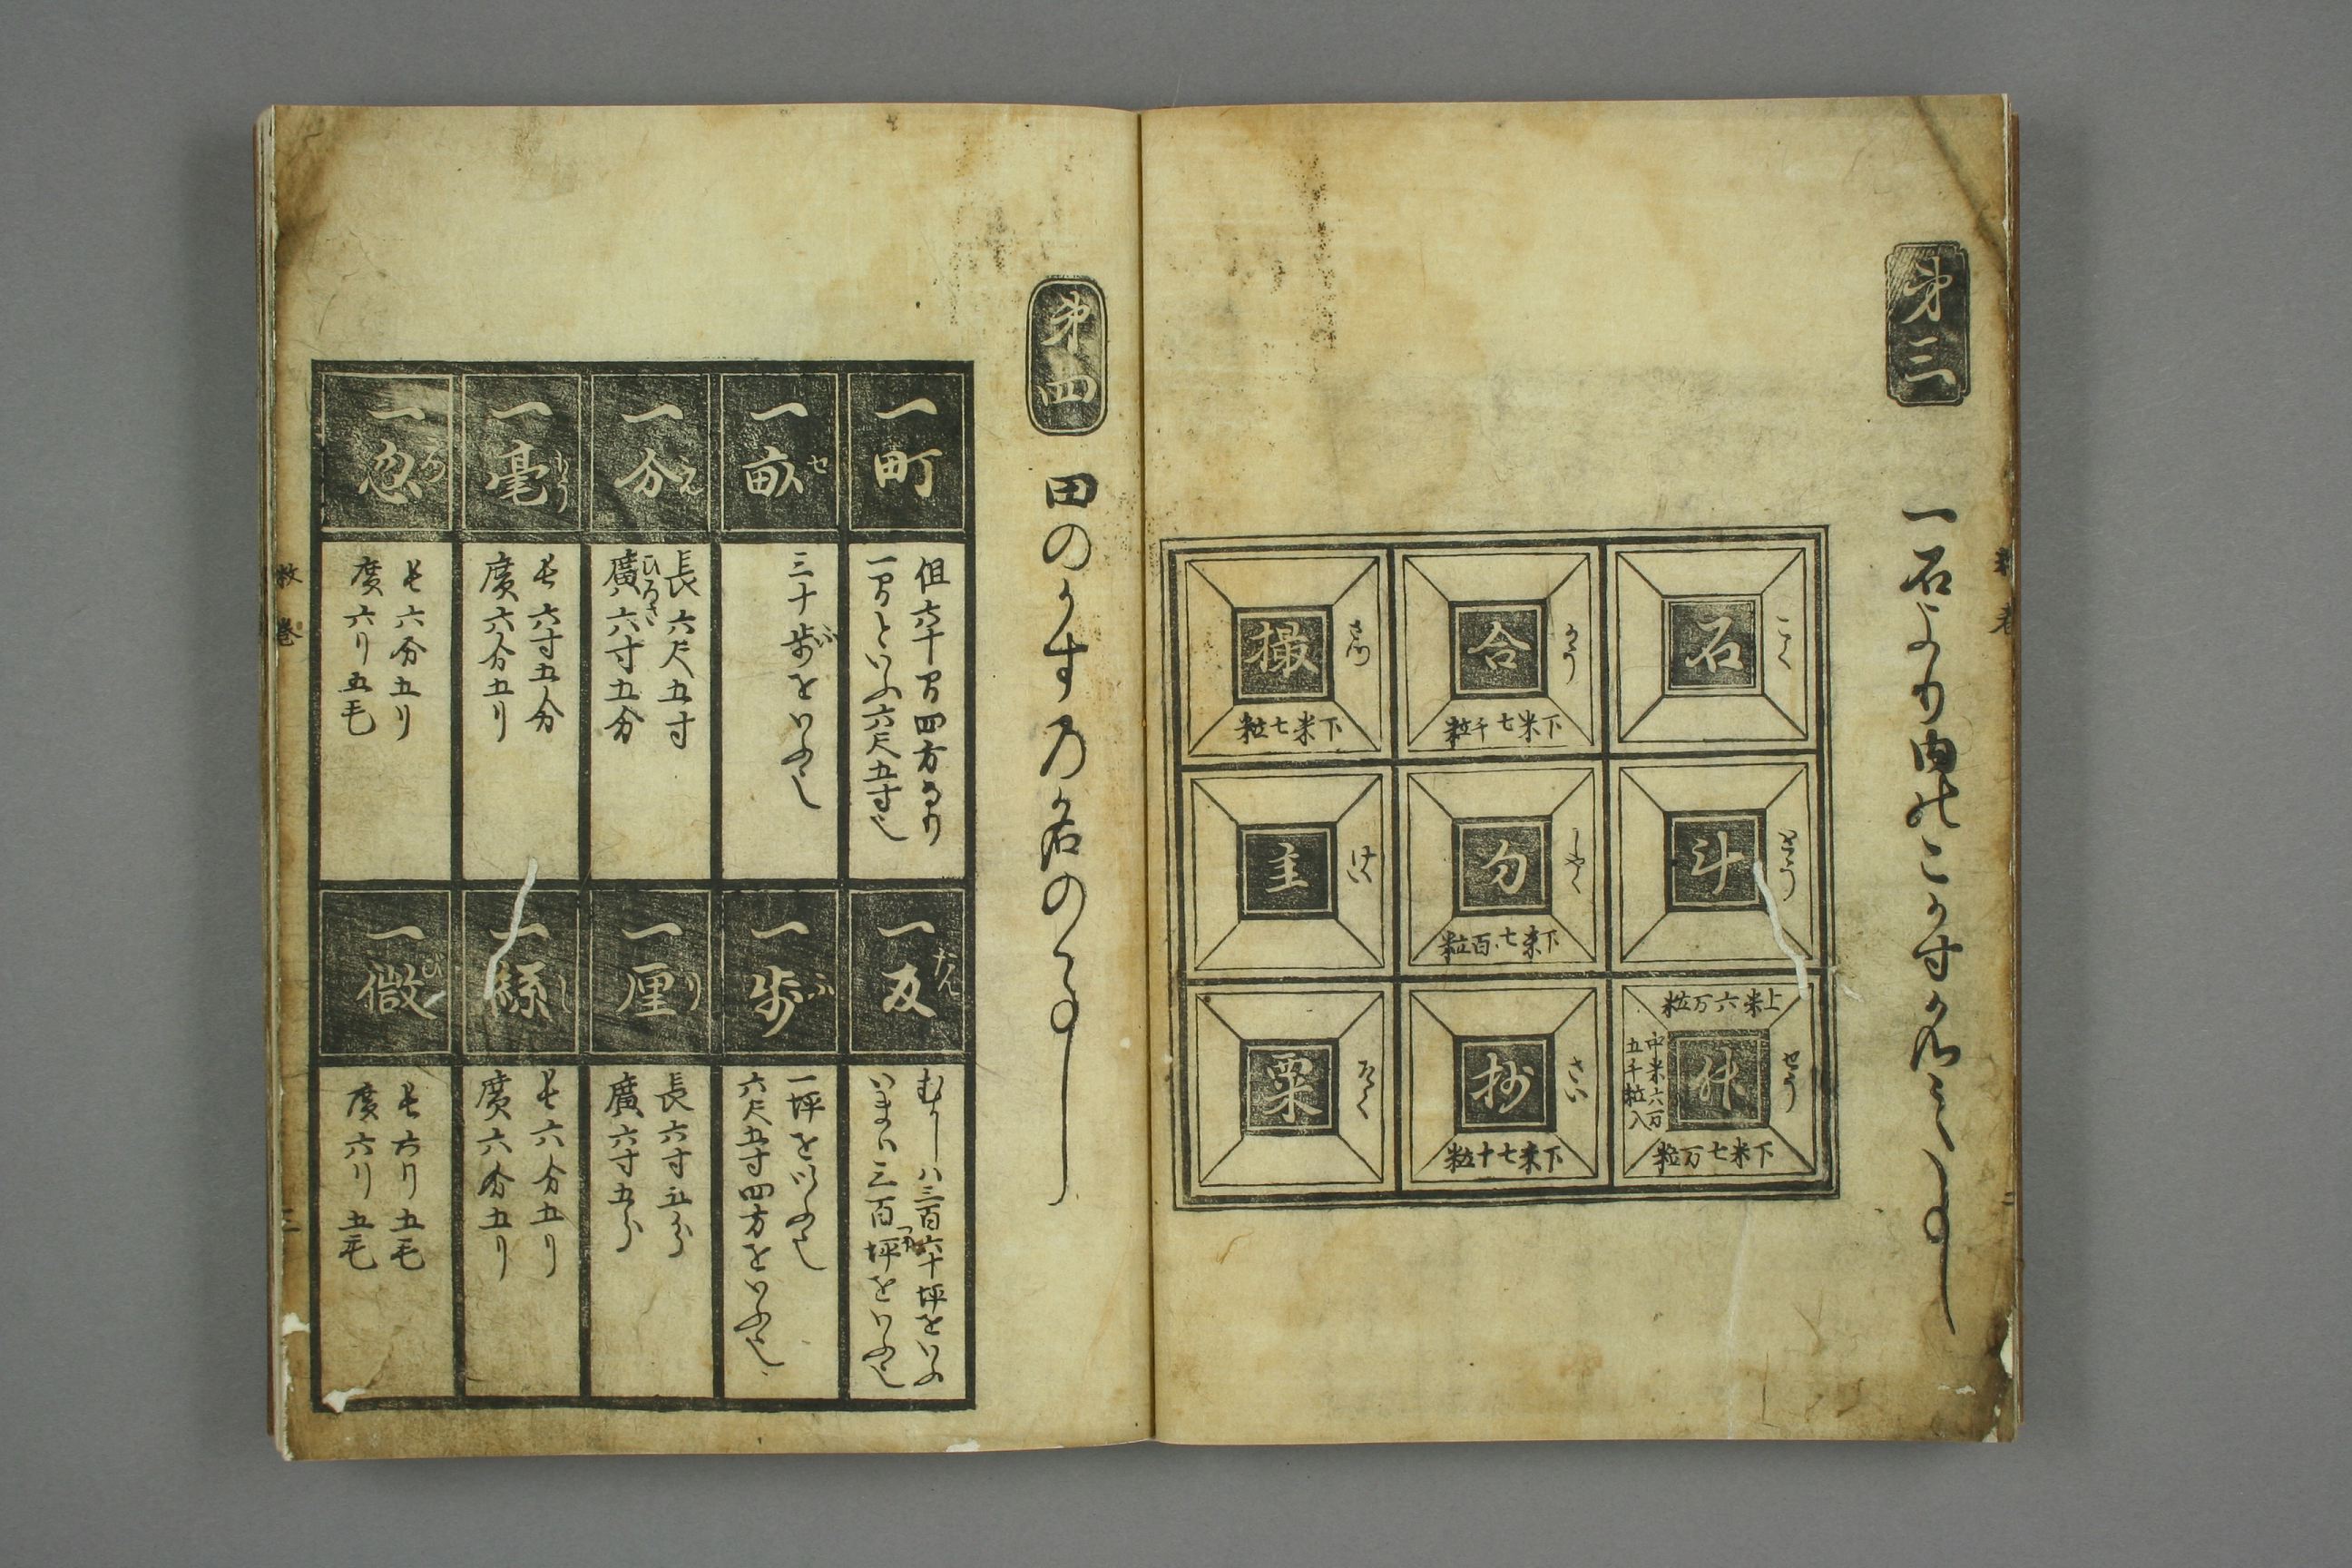 第三
一石より内のこかすの名之事
石 こく
斗 とう
升 せう
上米六万粒
中米六万
五千粒入
下米七万粒
合 かう
下米七千粒
勺 しやく
下米七百粒
抄 さい
下米七十粒
撮 さつ
下米七粒
圭 けい
粟 そく
第四
田のかすの名の事
一町
但六十間四方なり
一間といふ六尺五寸也
一畝 せ
三十歩をいふ也
一分 ふん
長六尺五寸
廣六寸五分
一毫 もう
長六寸五分
廣六分五リ
一忽 こつ
長六分五リ
廣六リ五毛
一反 たん
むかしハ三百六十坪をいふ
いまハ三百坪をいふ也
一歩 ふ
一坪をいふ也
六尺五寸四方をいふ也
一厘 り
長六寸五分
廣六寸五分
一絲 し
長六分五リ
廣六分五リ
一微 び
長六リ五毛
廣六リ五毛